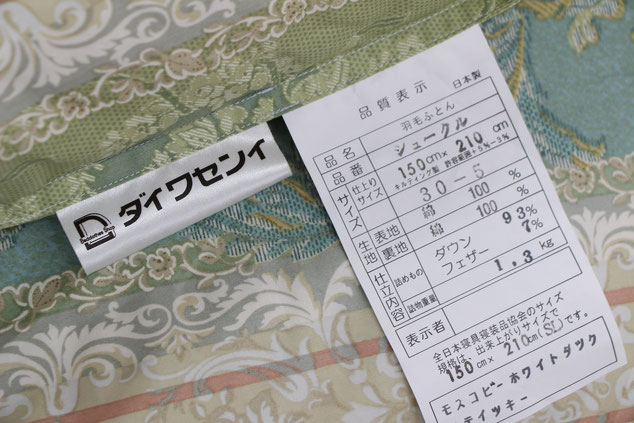 ダイワセンイ
品質表示
日本製
品名 羽毛ふとん
品番 シュークル
サイズ 仕上りサイズ 150cm×210cm
キルティング製 許容範囲+5%-3%
30-5
生地 表地 綿 100 %
裏地 綿 100 %
仕立内容 詰めもの ダウン 93%
フェザー 7%
詰物重量 1.3kg
表示者
全日本寝具寝装品協会のサイズ
規格は、出来上がりサイズで
150cm×210cm(SL)です。
モスコビーホワイトダツク
テイツキー